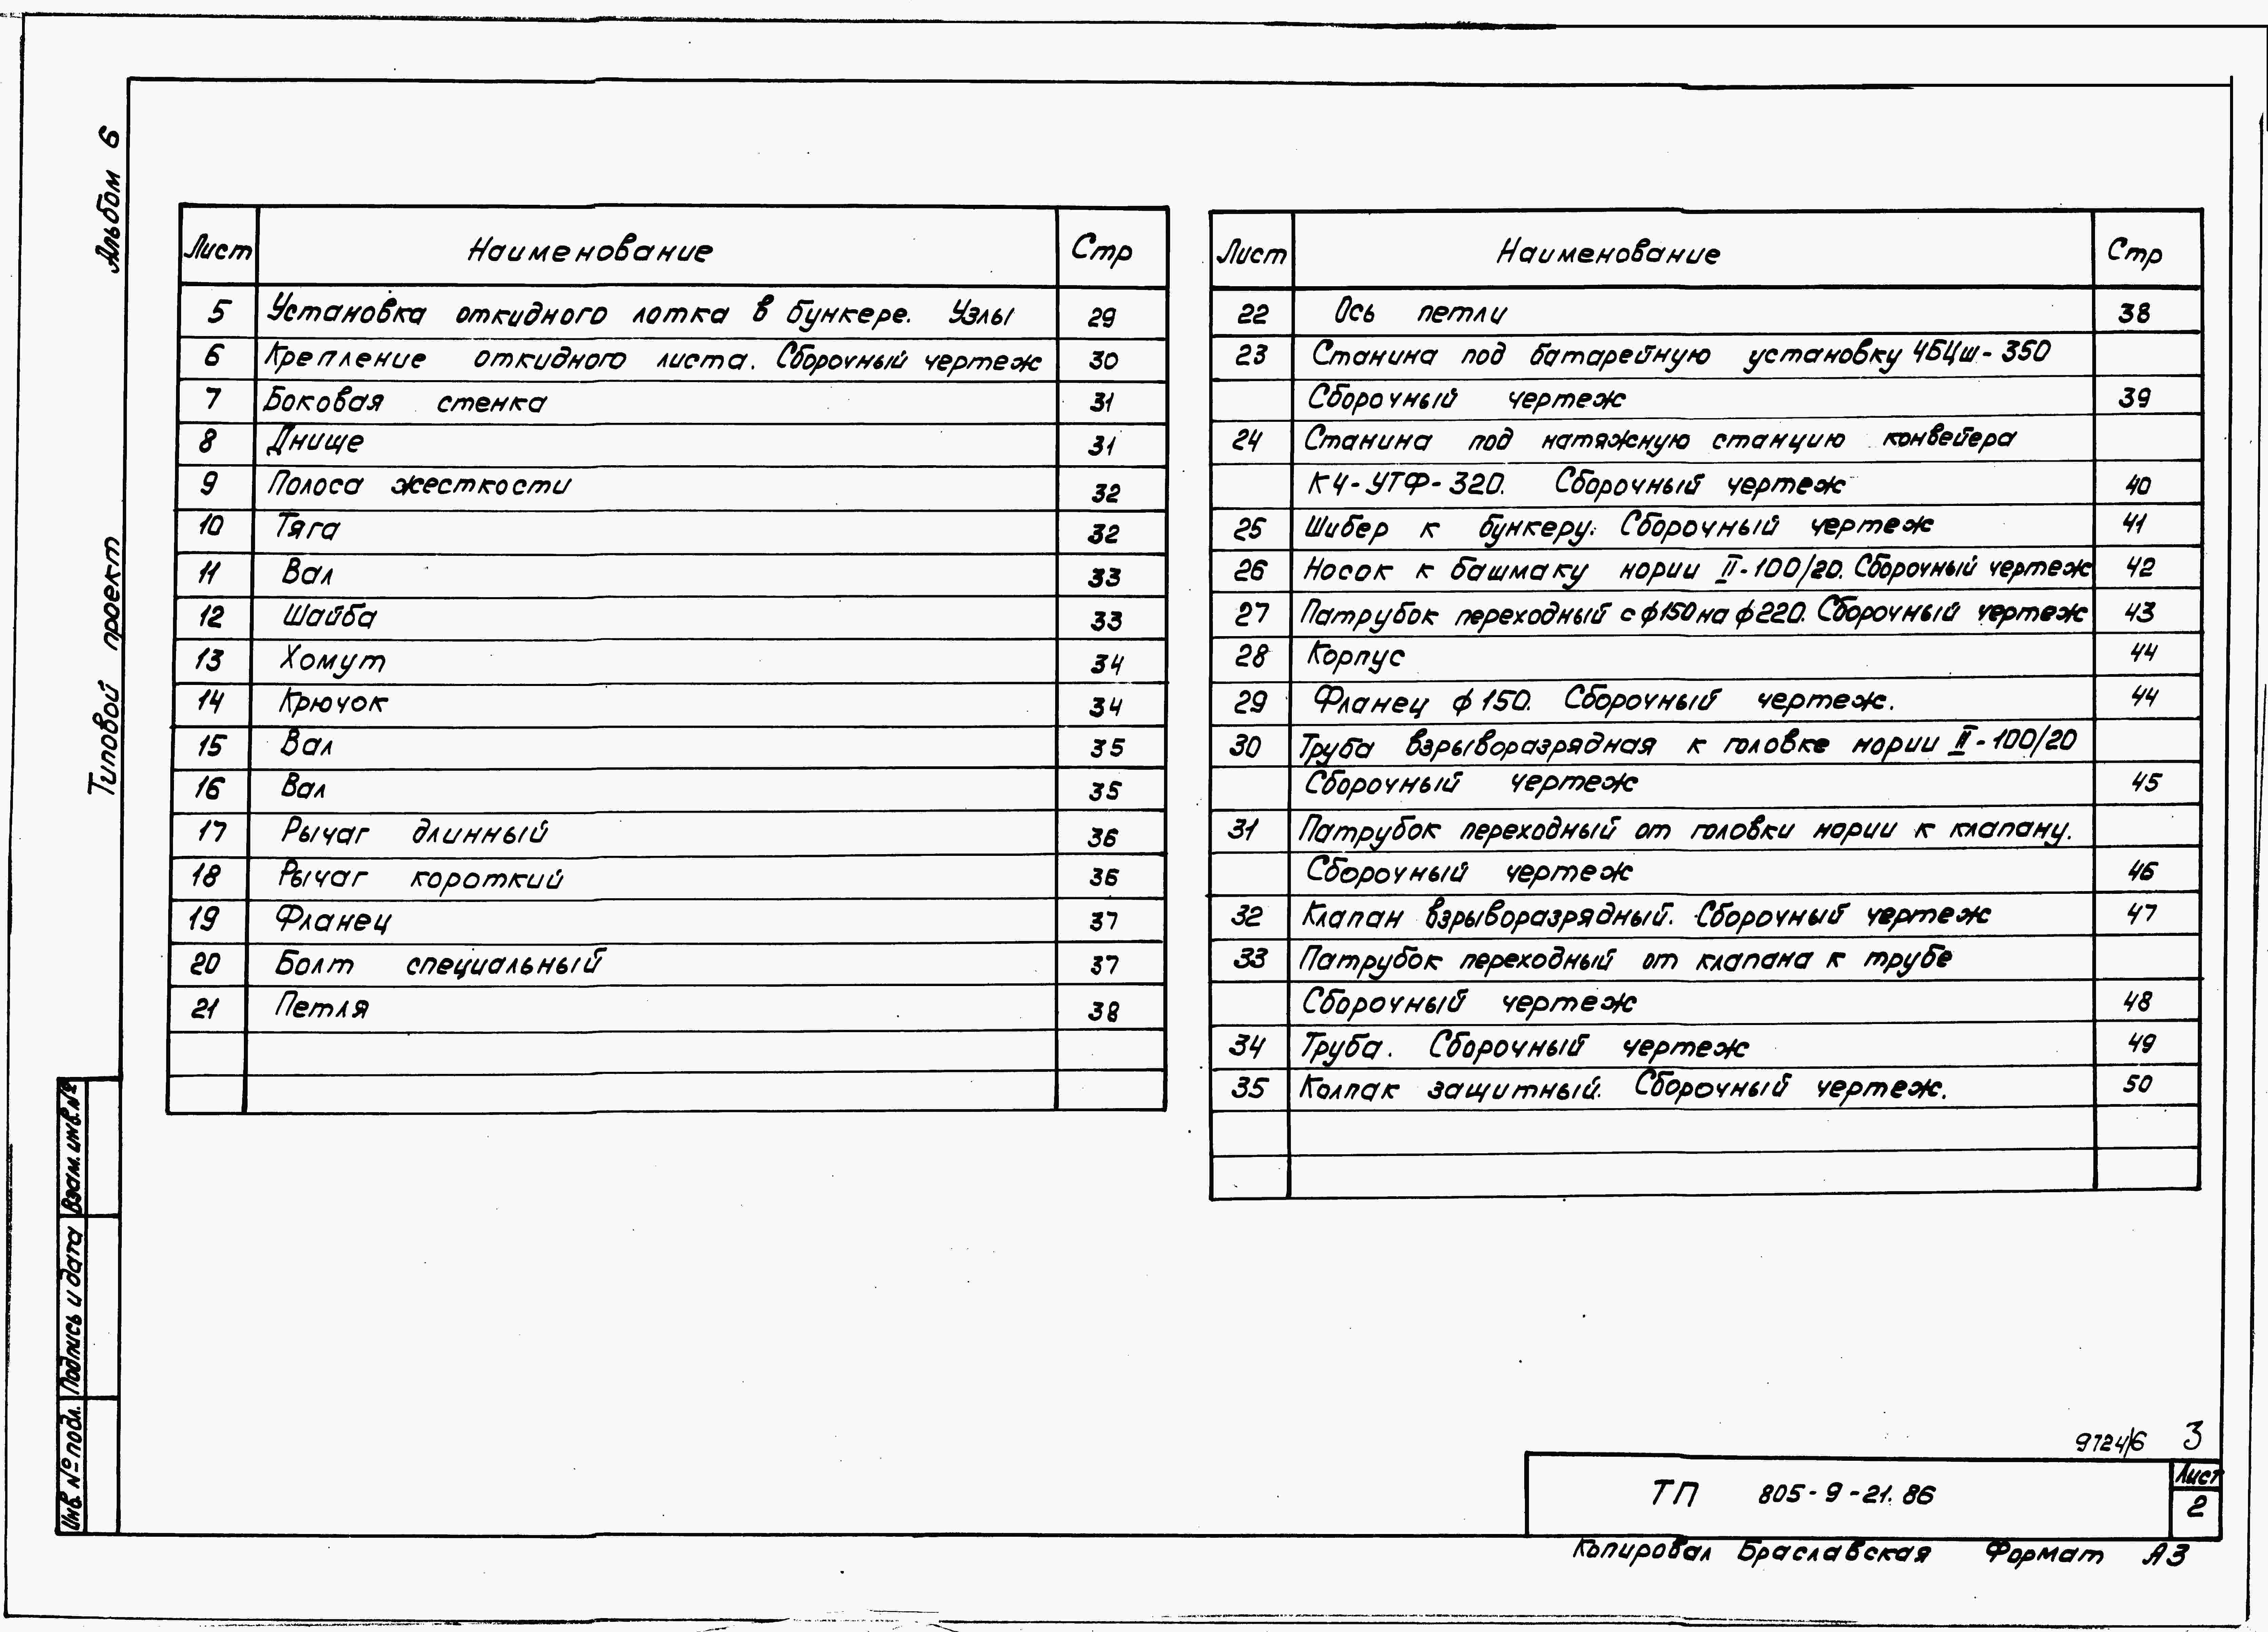 Альбом 6
Типовой проект
Лист Наименование Стр
5 Установка откидного лотка в бункере. Узлы 29
6 Крепление откидного листа. Сборочный чертеж 30
7 Боковая стенка 31
8 Днище 31
9 Полоса жесткости 32
10 Тяга 32
11 Вал 33
12 Шайба 33
13 Хомут 34
14 Крючок 34
15 Вал 35
16 Вал 35
17 Рычаг длинный 36
18 Рычаг короткий 36
19 Фланец 37
20 Болт специальный 37
21 Петля 38
Лист Наименование Стр
22 Ось петли 38
23 Станина под батарейную установку 4БЦш-350
Сборочный чертеж 39
24 Станина под натяжную станцию конвейера
К4-УТФ-320. Сборочный чертеж 40
25 Шибер к бункеру. Сборочный чертеж 41
26 Носок к башмаку нории II-100/20. Сборочный чертеж 42
27 Патрубок переходный с ф150 на ф220. Сборочный чертеж 43
28 Корпус 44
29 Фланец ф150. Сборочный чертеж. 44
30 Труба взрыворазрядная к головке нории II-100/20
Сборочный чертеж 45
31 Патрубок переходный от головки нории к клапану.
Сборочный чертеж 46
32 Клапан взрыворазрядный. Сборочный чертеж 47
33 Патрубок переходный от клапана к трубе
Сборочный чертеж 48
34 Труба. Сборочный чертеж 49
35 Колпак защитный. Сборочный чертеж. 50
Взам. инв. №
Подпись и дата
Инв. № подл.
9724/6 3
ТП 805-9-21.86
Лист
2
Копировал Браславская Формат А3